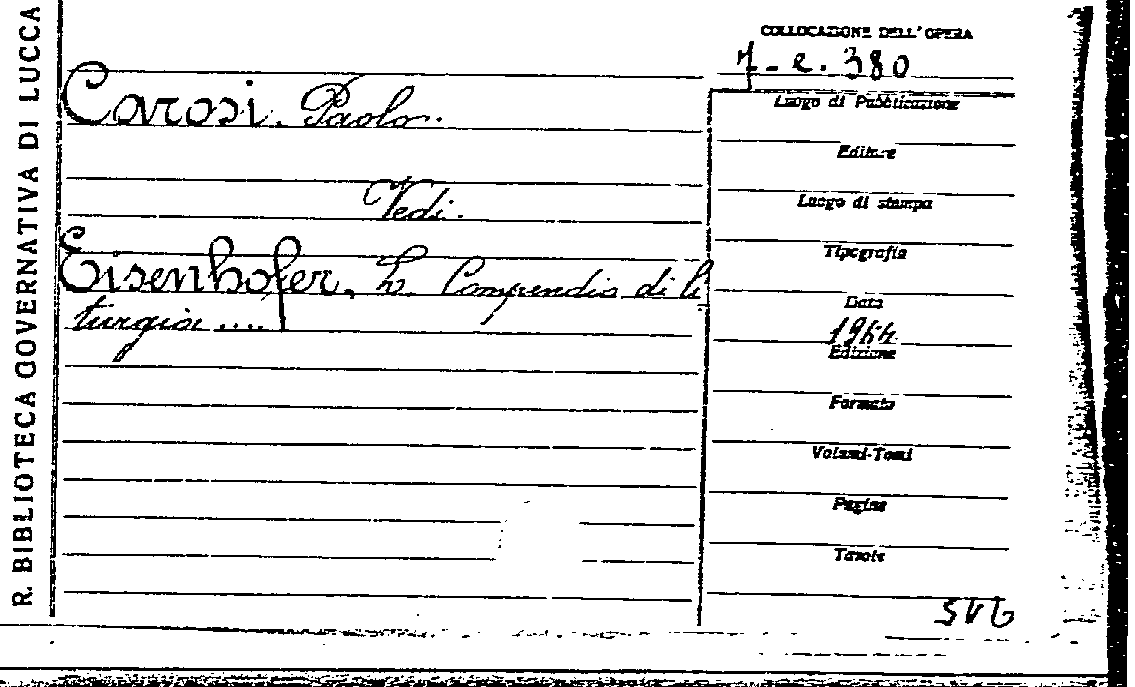 R. BIBLIOTECA GOVERNATIVA DI LUCCA
COLLOCAZIONE DELL'OPERA
7-e.380
Carosi. Paolo.
Vedi.
Eisenhofer, L. Compendio di li
turgia ....
Luogo di Pubblicazione
Editore
Luogo di stampa
Tipografia
Data
1944
Edizione
Formato
Volumi-Tomi
Pagine
Tavole